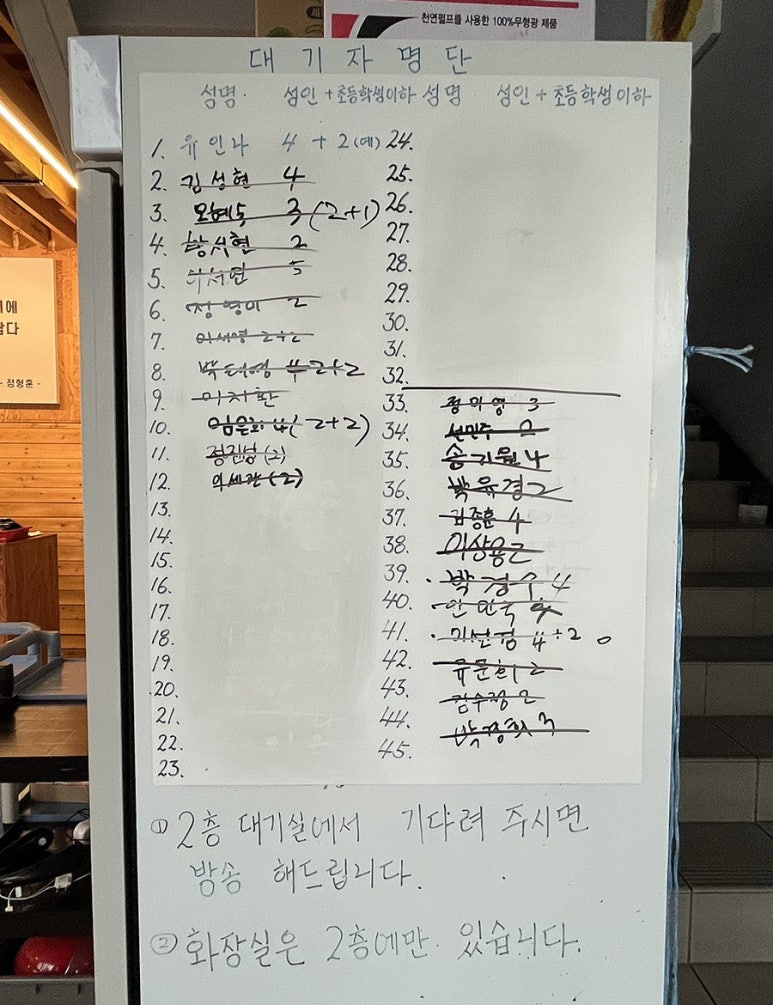 천연펄프를 사용한 100%무형광 제품
대 기 자 명 단
성명· 성인 + 초등학생이하 성명 성인 + 초등학생이하
1. 유인나 4 + 2(예)
2. 김성현 4
3. 오혜숙 3 (2+1)
4. 황서현 2
5. 이서연 5
6. 정영미 2
7. 이세영 2+2
8. 박태영 4 2+2
9. 이지환
10. 임윤희 4 (2+2)
11. 정진성 (2)
12. 이세관 (2)
13.
14.
15.
16.
17.
18.
19.
20.
21.
22.
23.
24.
25.
26.
27.
28.
29.
30.
31.
32.
33. 정미영 3
34. 선민주 2
35. 송기원 4
36. 박유경 2
37. 김종훈 4
38. 이상용 2
39. 박경수 4
40. 안민국 4
41. 이선경 4+2
42. 유문희 2
43. 김수정 2
44. 박경희 3
45.
① 2층 대기실에서 기다려 주시면
방송 해드립니다.
② 화장실은 2층에만 있습니다.
에
- 정형훈 -